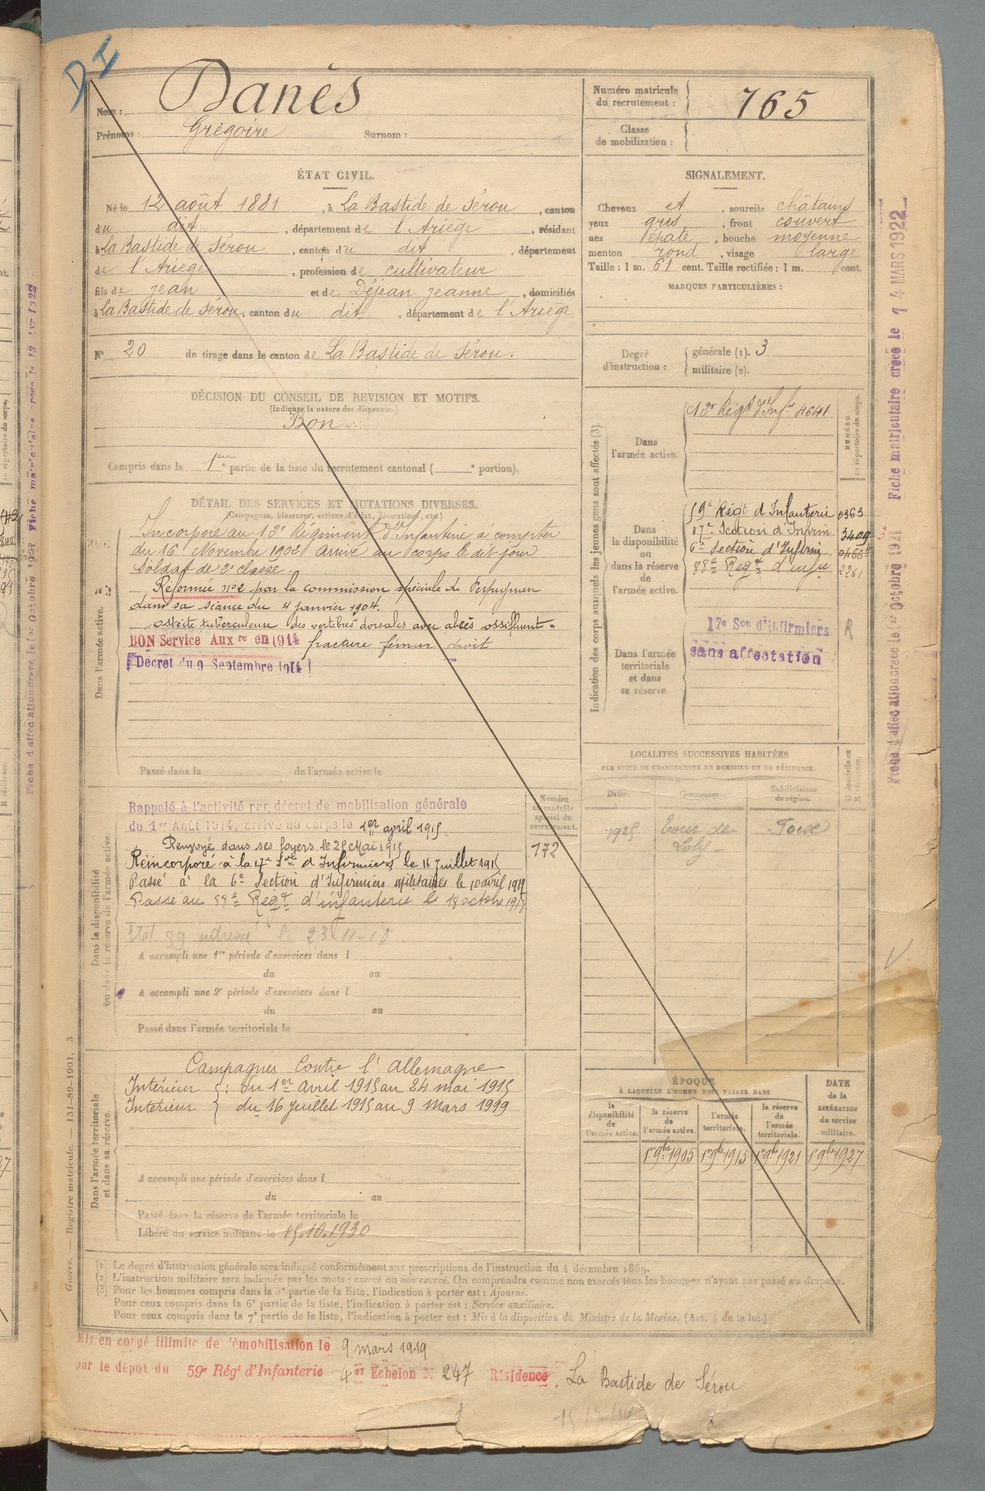 D I
Nom : Danès
Prénoms : Grégoire Surnom :
Numéro matricule du recrutement : 765
Classe de mobilisation :
ÉTAT CIVIL.
Né le 12 août 1881, à La Bastide de Sérou, canton
du dit, département de l'Ariège, résidant
à La Bastide de Sérou, canton du dit, département
de l'Ariège, profession de cultivateur
fils de Jean et de Déjean Jeanne, domiciliés
à La Bastide de Sérou, canton du dit, département de l'Ariège
N° 20 de tirage dans le canton de La Bastide de Sérou.
SIGNALEMENT.
Cheveux et, sourcils châtains
yeux gris, front couvert
nez épaté, bouche moyenne
menton rond, visage large
Taille : 1 m. 61 cent. Taille rectifiée : 1 m. cent.
MARQUES PARTICULIÈRES :
Degré d'instruction : générale (1). 3
militaire (2).
DÉCISION DU CONSEIL DE REVISION ET MOTIFS.
(Indiquer la nature des dispenses.)
Bon
Compris dans la 1ere partie de la liste du recrutement cantonal ( e portion).
DÉTAIL DES SERVICES ET MUTATIONS DIVERSES.
(Campagnes, blessures, actions d'éclat, décorations, etc.)
Dans l'armée active.
Incorporé au 13e Régiment d'Infanterie à compter
du 16 Novembre 1902 arrivé au corps le dit jour
Soldat de 2e classe.
Réformé n°2 par la commission spéciale de Perpignan
dans sa séance du 4 janvier 1904.
ostéite tuberculeuse des vertèbres dorsales avec abcès ossifluent
BON Service Auxre en 1914 fracture fémur droit
Décret du 9 Septembre 1914
Passé dans la de l'armée active le
Indication des corps auxquels les jeunes gens sont affectés (3).
Dans l'armée active.
Régt d'Infie 4641
NUMÉRO au répertoire du corps.
Dans la disponibilité ou dans la réserve de l'armée active.
Régt d'Infanterie 0363
17e Section d'Infirm. 3409
6e Section d'Infirm
88e Regt d'infie 2261
Dans l'armée territoriale et dans sa réserve.
17e Son d'infirmiers R
sans affectation
Fiche matriculaire créée le 14 MARS 1922
Fiche d'affectation créée le 1er Octobre 1921
LOCALITÉS SUCCESSIVES HABITÉES
PAR SUITE DE CHANGEMENTS DE DOMICILE OU DE RÉSIDENCE.
Dates. Communes. Subdivisions de région. D domicile ou R résidence.
1925 Tour de Foix
Dans la disponibilité ou dans la réserve de l'armée active.
Numéro au contrôle spécial du recrutement.
172
Rappelé à l'activité par décret de mobilisation générale
du 1er Août 1914, arrivé au corps le 1er avril 1915
Renvoyé dans ses foyers le 25 Mai 1915
Réincorporé à la 17e Son d'Infirmiers le 16 juillet 1915
Passé à la 6e Section d'Infirmiers militaires le 10 avril 1917
Passé au 88e Regt d'infanterie le 18 octobre 1917
A accompli une 1re période d'exercices dans l
du au
A accompli une 2e période d'exercices dans l
du au
Passé dans l'armée territoriale le
Dans l'armée territoriale et dans sa réserve.
Campagnes Contre l'Allemagne
Intérieur { : du 1er avril 1915 au 24 mai 1915
Intérieur } du 16 juillet 1915 au 9 Mars 1919
A accompli une période d'exercices dans l
du au
Passé dans la réserve de l'armée territoriale le
Libéré du service militaire le 15.10.1930
ÉPOQUE
À LAQUELLE L'HOMME DOIT PASSER DANS
la disponibilité de l'armée active. la réserve de l'armée active. l'armée territoriale. la réserve de l'armée territoriale. DATE de la LIBÉRATION du service militaire.
1er 9bre 1905 1er 9bre 1915 1er 9bre 1921 1er 9bre 1927
Guerre. Registre matricule. 131-89-1901. 3
(1) Le degré d'instruction générale sera indiqué conformément aux prescriptions de l'instruction du 4 décembre 1889.
(2) L'instruction militaire sera indiquée par les mots : exercé ou non exercé. On comprendra comme non exercés tous les hommes n'ayant pas passé au drapeau.
(3) Pour les hommes compris dans la 5e partie de la liste, l'indication à porter est : Ajourné.
Pour ceux compris dans la 6e partie de la liste, l'indication à porter est : Service auxiliaire.
Pour ceux compris dans la 7e partie de la liste, l'indication à porter est : Mis à la disposition du Ministre de la Marine. (Art. 4 de la loi.)
Mis en congé illimité de démobilisation le 9 mars 1919
par le dépôt du 59e Régt d'Infanterie 4e Echelon N° 247 Résidence La Bastide de Sérou